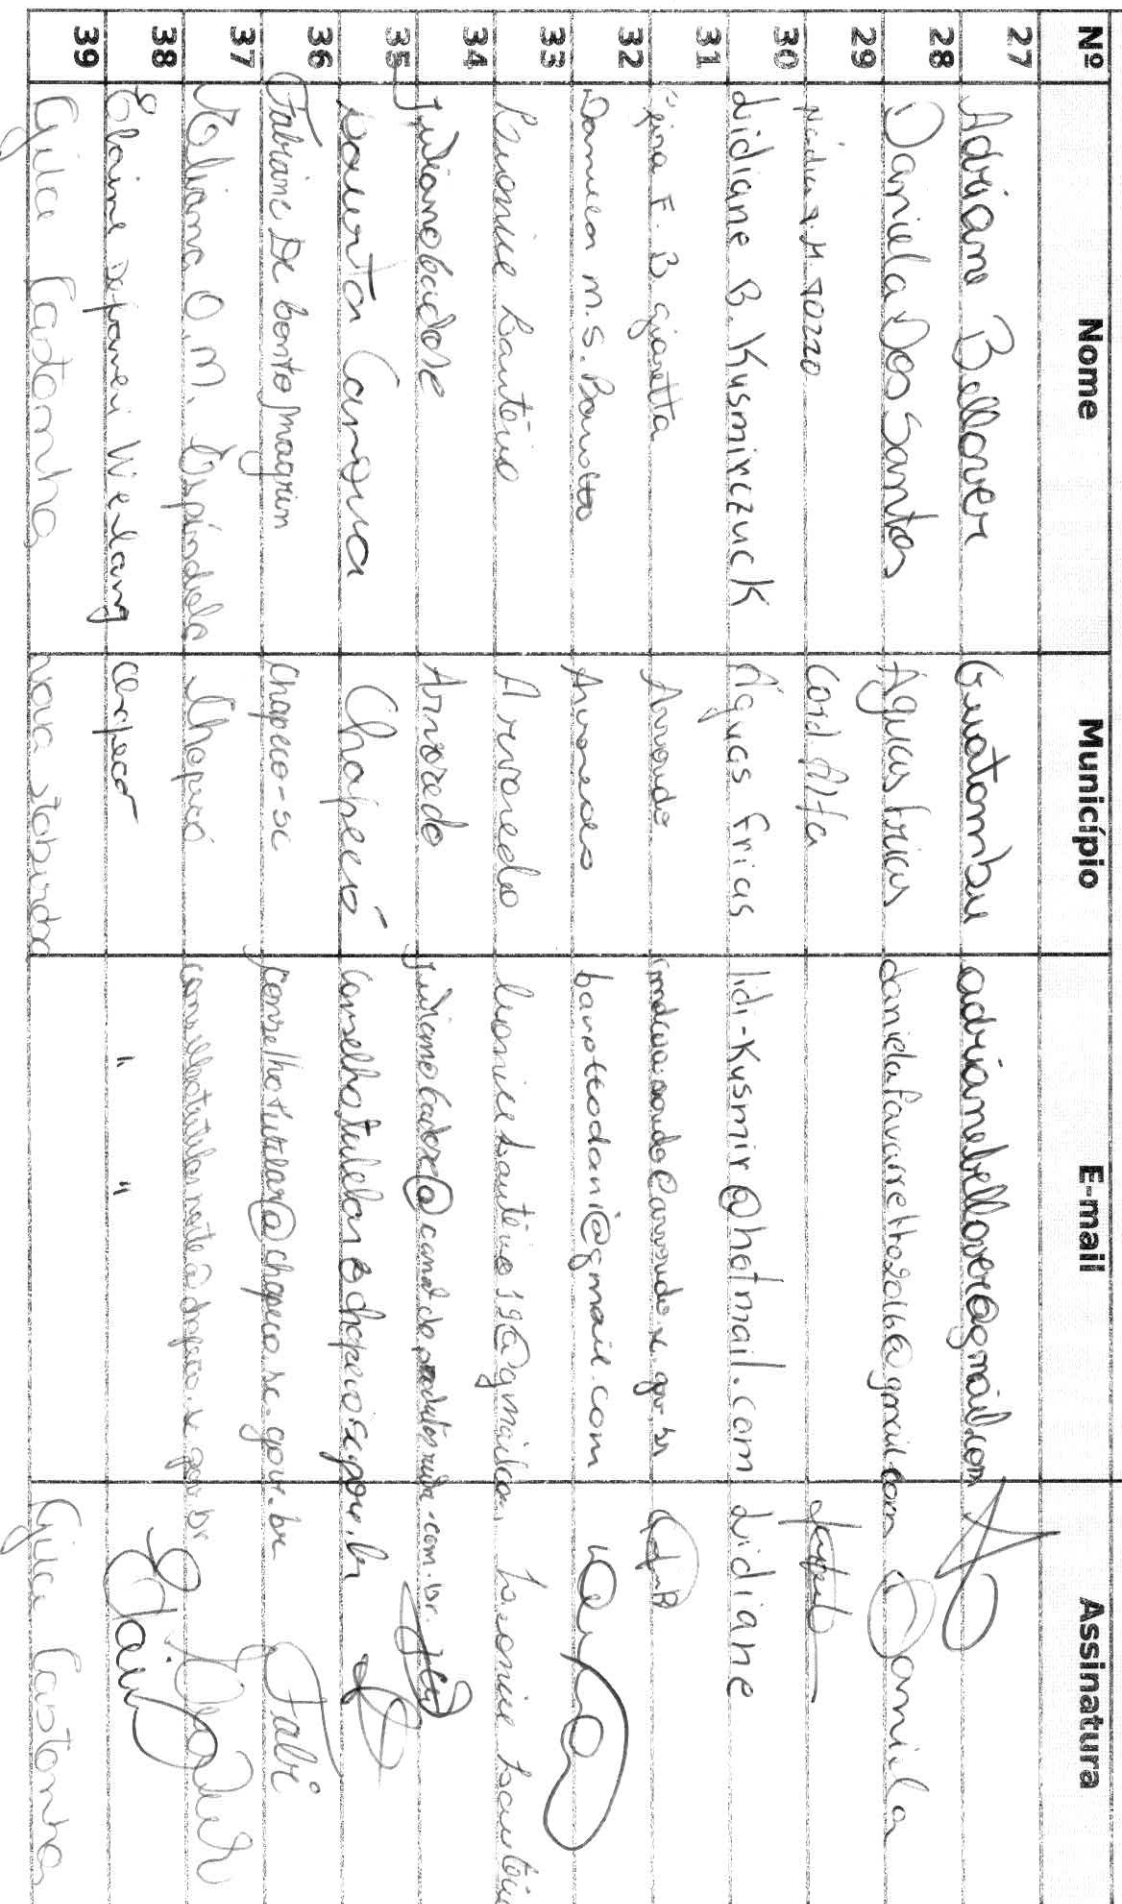 Nº Nome Município E-mail Assinatura
27 Adriane Bellaver Guatambu adrianebellaver@gmail.com
28 Daniela Dos Santos Águas frias danielafavaretto2016@gmail.com Daniela
29 Nadia A. M. Tozzo Cord. Alta
30 Lidiane B. Kusmirczuck Águas Frias lidi-kusmir@hotmail.com Lidiane
31 F. B. Gianetta Arvoredo
32 Daniela M. S. Barotto Arvoredo barottodani@gmail.com
33 Leonice Lautério Arvoredo leonicelauterio19@gmail.com Leonice Lautério
34 Juliano Cadore Arvoredo julianocadore@canaldeprodutosrurais.com.br
35 Canova Chapecó conselhotutelar@chapeco.sc.gov.br
36 Fabiane De Conto Magrin Chapeco-SC conselhotutelar@chapeco.sc.gov.br Fabi
37 Meliana O. M. Espindola Chapecó conselhotutelarnorte@chapeco.sc.gov.br
38 Elaine Werlang Chapecó " " Elaine
39 Gilce Castanha Nova Itaberaba Gilce Castanha